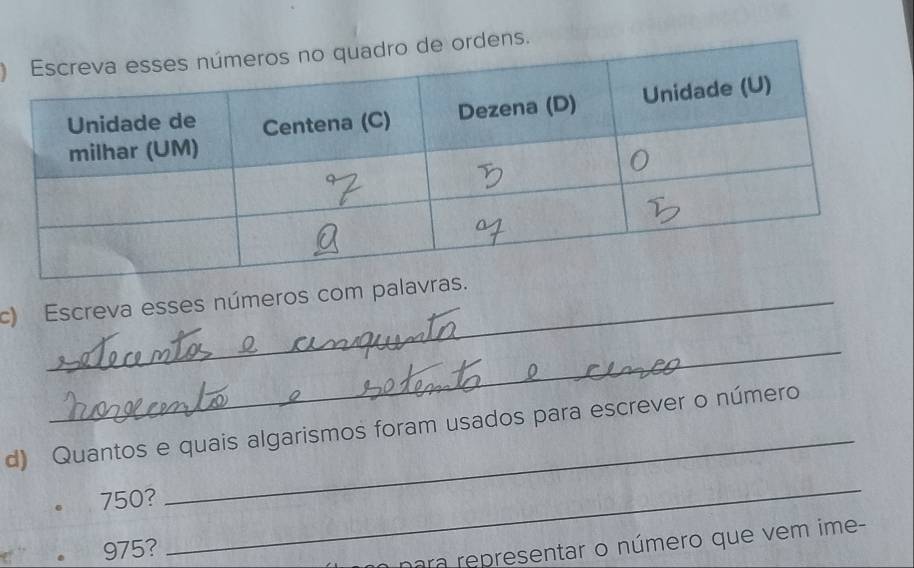 ) Escreva esses números no quadro de ordens.
Unidade de milhar (UM) Centena (C) Dezena (D) Unidade (U)
7 5 0
9 7 5
c) Escreva esses números com palavras.
setecentos e cinquenta
novecento e setenta e cinco
d) Quantos e quais algarismos foram usados para escrever o número
• 750?
• 975?
para representar o número que vem ime-